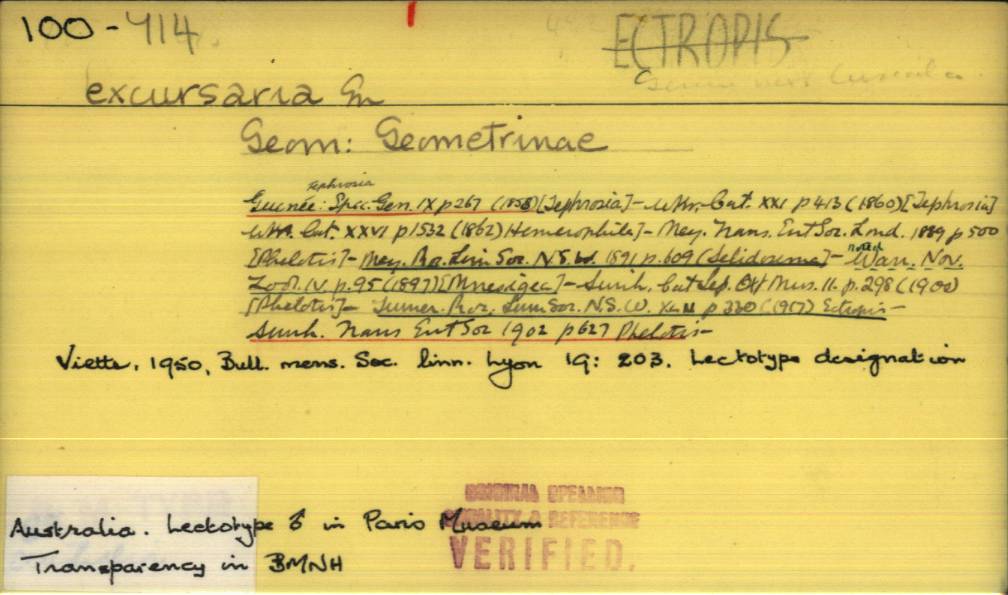 100-414.
ECTROPIS
excursaria Gn
Geom: Geometrinae
Tephrosia
Guenée: Spec. Gen. IX p 267 (1858) [Tephrosia] - Wkr. Cat. XXI p 413 (1860) [Tephrosia]
Wkr. Cat. XXVI p 1532 (1862) Hemerophila] - Mey. Trans. Ent Soc. Lond. 1889 p 500
[Phelotis] - Mey. Proc. Linn Soc. N.S.W. 1891 p. 609 (Selidosema] - Warr. Nov.
Zool. IV. p. 95 (1897) [Mnesigea] - Swinh. Cat Lep. Oxf Mus. II. p. 298 (1900)
[Phelotis] - Turner. Proc. Linn Soc. N.S.W. XLII p 330 (1917) Ectropis -
Swinh. Trans Ent Soc 1902 p 627 Phelotis -
Viette, 1950, Bull. mens. Soc. linn. Lyon 19: 203. Lectotype designation
ORIGINAL SPELLING
LOCALITY & REFERENCE
VERIFIED.
Australia. Lectotype ♂ in Paris Museum
Transparency in BMNH